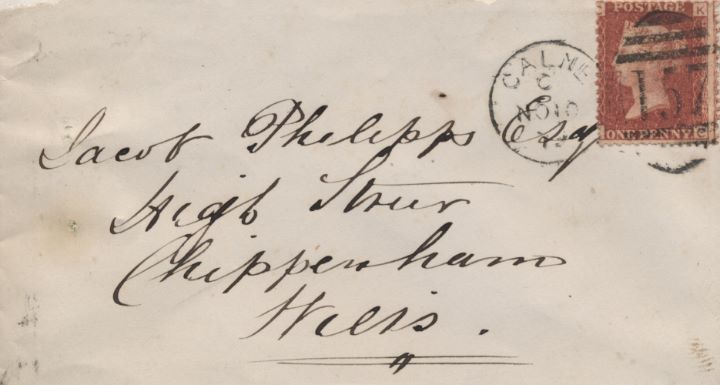 POSTAGE
K
157
ONE PENNY
CALNE
C
NO 10
Jacob Philipps Esq
High Street
Chippenham
Wilts.